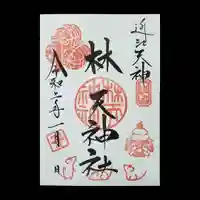 近江天神
林天神社
令和二年一月 日